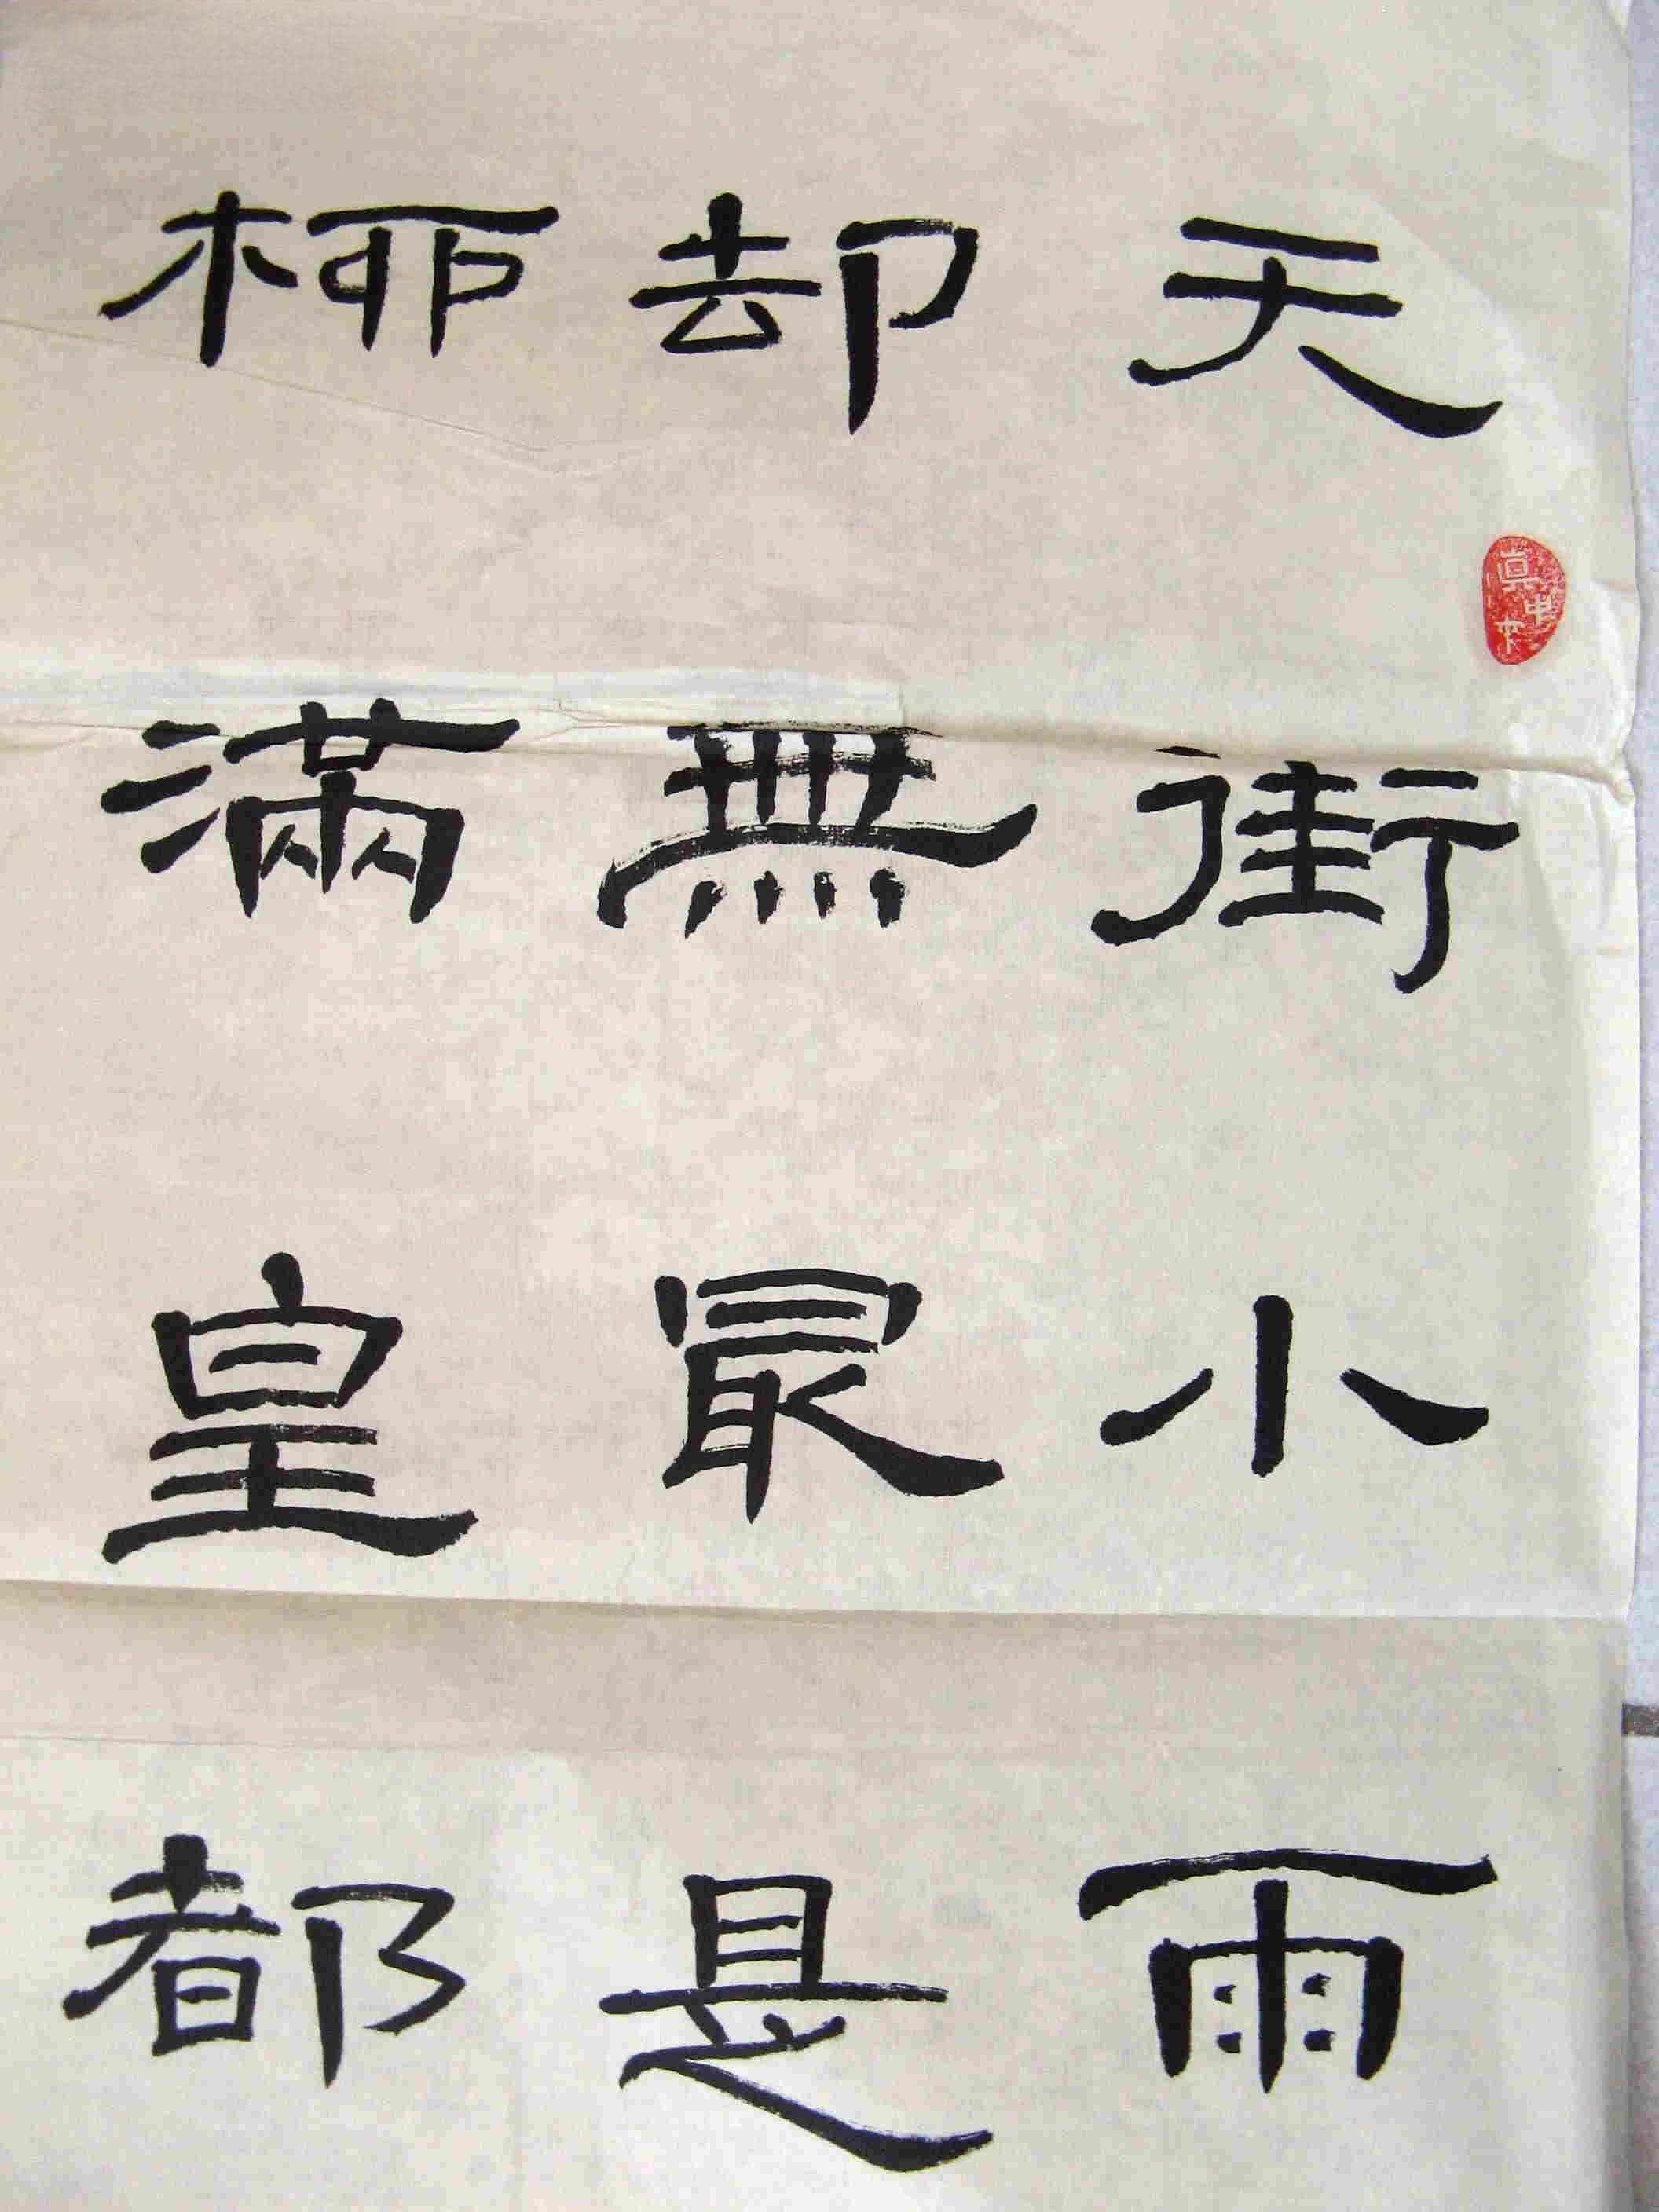 天街小雨
却無最是
柳滿皇都